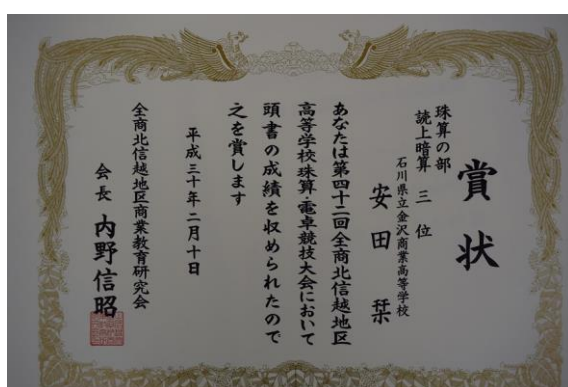 賞状
珠算の部
読上暗算 三位
石川県立金沢商業高等学校
安田 栞
あなたは第四十二回全商北信越地区
高等学校珠算・電卓競技大会において
頭書の成績を収められたので
之を賞します
平成三十年二月十日
全商北信越地区商業教育研究会
会長 内野信昭